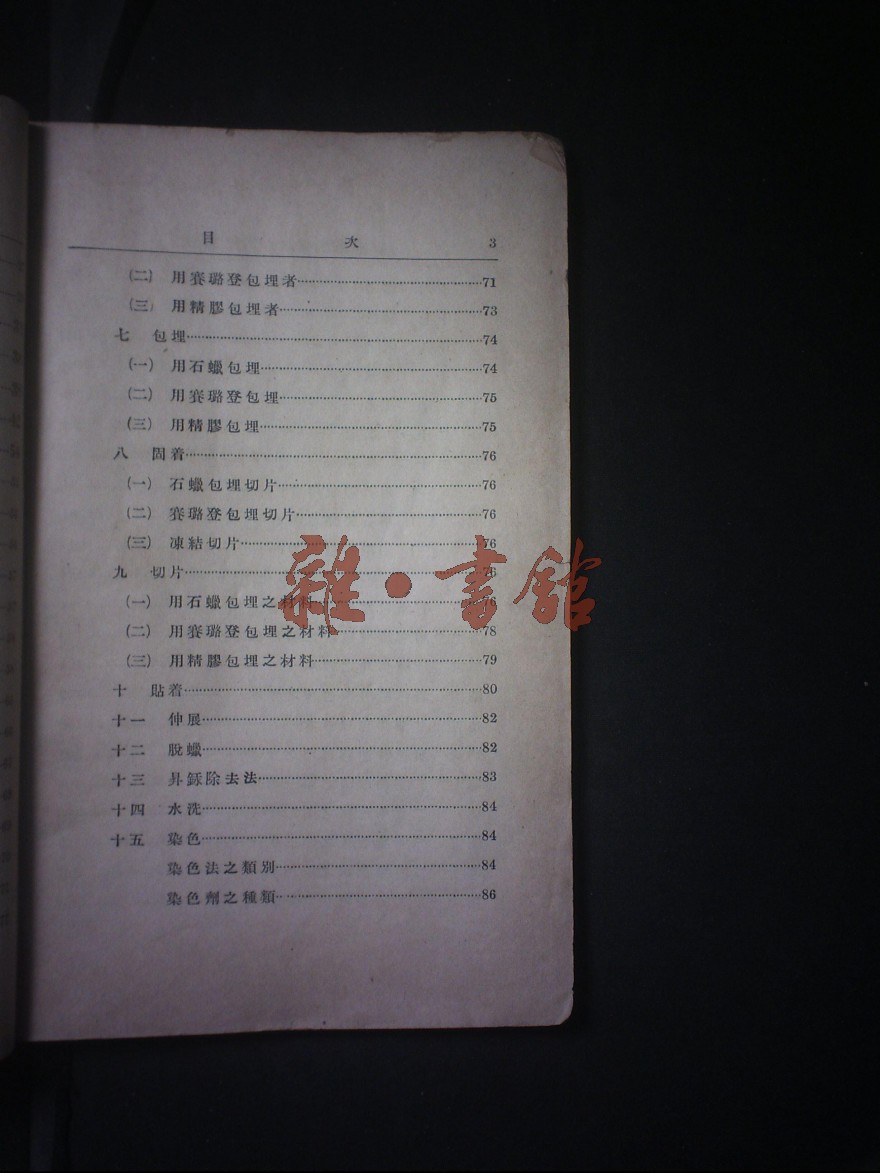 目 次 3
(二) 用賽璐登包埋者……71
(三) 用精膠包埋者……73
七 包埋……74
(一) 用石蠟包埋……74
(二) 用賽璐登包埋……75
(三) 用精膠包埋……75
八 固着……76
(一) 石蠟包埋切片……76
(二) 賽璐登包埋切片……76
(三) 凍結切片……76
九 切片……76
(一) 用石蠟包埋之材料……76
(二) 用賽璐登包埋之材料……78
(三) 用精膠包埋之材料……79
十 貼着……80
十一 伸展……82
十二 脫蠟……82
十三 昇銾除去法……83
十四 水洗……84
十五 染色……84
染色法之類別……84
染色劑之種類……86
雜·書館